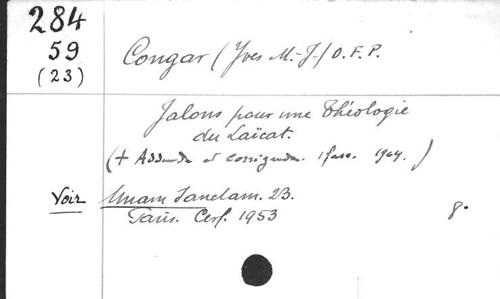 284
59
(23)
Congar (Yves M.-J.) O.F.P.
Jalons pour une Théologie
du Laïcat.
(+ Addenda et corrigenda. 1 fasc. 1964.)
Voir Unam Sanctam. 23.
Paris. Cerf. 1953
8.